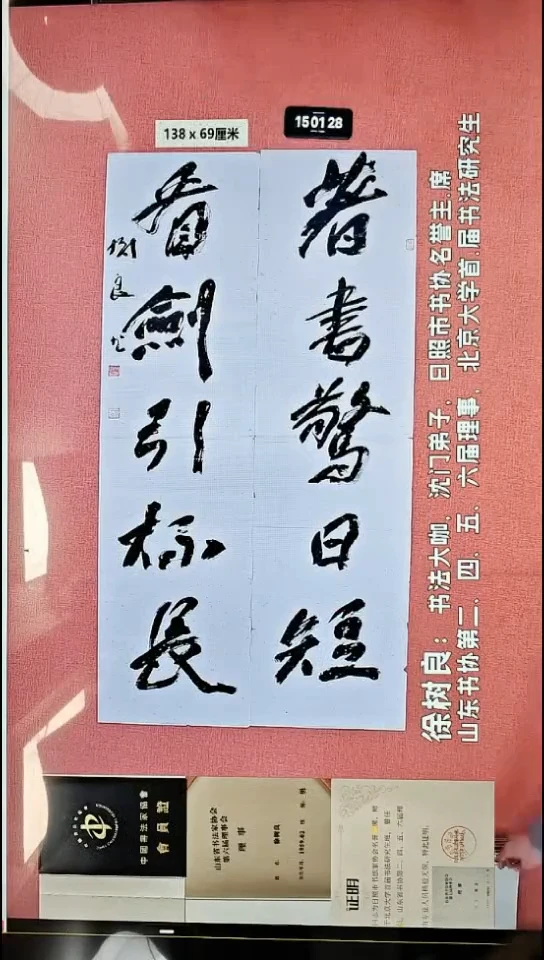 138 x 69厘米
150128
著書驚日短
看劍引杯長
樹良
徐树良：书法大咖，沈门弟子，日照市书协名誉主席
山东书协第二、四、五、六届理事，北京大学首届书法研究生
中國書法家協會
會員證
山东省书法家协会
第六届理事会
理事
徐树良
证明